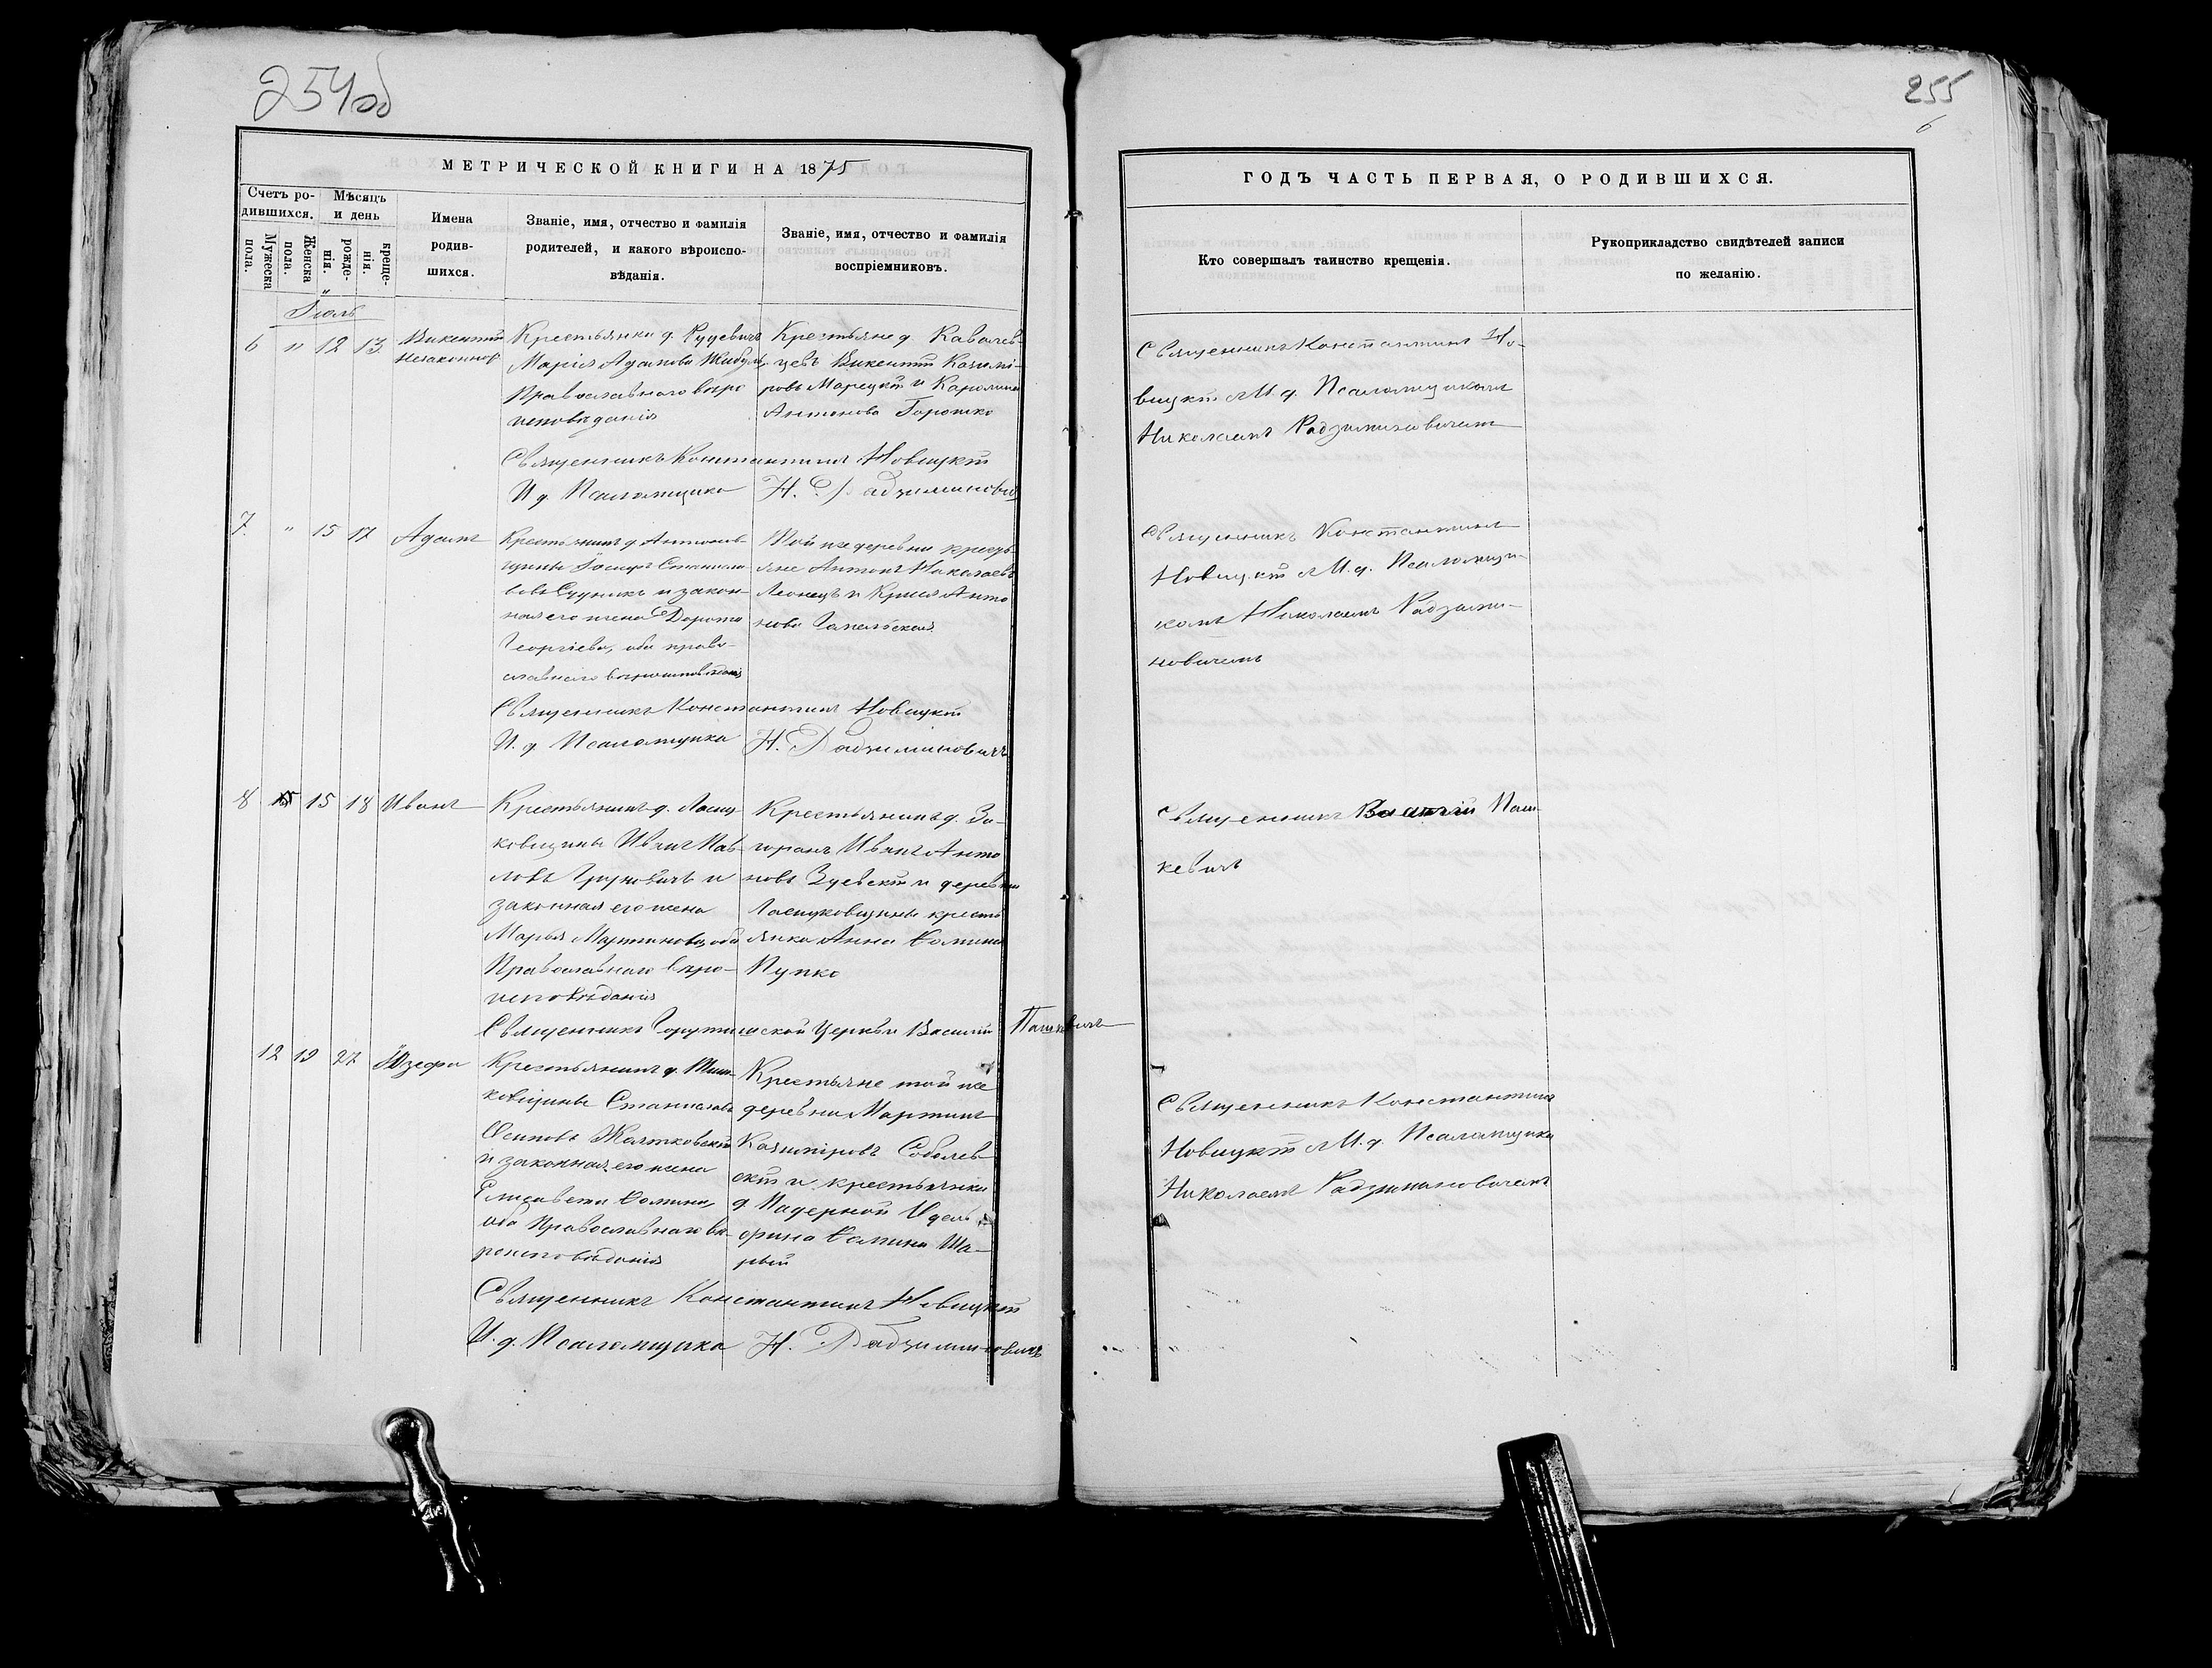 254об
МЕТРИЧЕСКОЙ КНИГИ НА 1875
Счетъ ро-
дившихся.
Мѣсяцъ
и день
Мужеска
пола.
Женска
пола.
рожде-
нія.
креще-
нія.
Имена
родив-
шихся.
Званіе, имя, отчество и фамилія
родителей, и какого вѣроиспо-
вѣданія.
Званіе, имя, отчество и фамилія
воспріемниковъ.
Іюль
6 " 12 13 Викентій
незаконнор.
Крестьянка д.
Марія Адамова
Православнаго вѣро
исповѣданія
Крестьяне д. Кавалев-
цевъ Викентій Казимі-
ровъ Марецкій и Каролина
Антонова Горошко
Священникъ Константинъ Новицкій
И д. Псаломщика Н. Радзиминовичъ
7. " 15 17 Адамъ
Крестьянинъ д. Антонов-
щины Осипъ Станисла-
вовъ и закон-
ная его жена Дорота
Георгіева, оба право-
славнаго вѣроисповѣданія
Той же деревни кресть-
яне Антонъ Николаевъ
Леонецъ и Антo
нова
Священникъ Константинъ Новицкій
И. д. Псаломщика Н. Радзиминовичъ
8 15 18 Иванъ
Крестьянинъ д. Ласиц-
ковщины Иванъ Пав-
ловъ и
законная его жена
Марья Мартинова, оба
Православнаго вѣро-
исповѣданія
Крестьянинъ д. За-
горанъ Иванъ Антo
новъ Зуевскій и деревни
кресть
янка Анна Фомина
Пупко
Священникъ Церкви Василій Пашкевичъ
12 19 27 Юзефа
Крестьянинъ д.
ковщины Станиславъ
Осиповъ Жолтковскій
и законная его жена
Елисавета Фомина,
оба Православнаго вѣ-
роисповѣданія
Крестьяне той же
деревни Мартинъ
Казиміровъ Соболев-
скій и крестьянка
д. Падерной Юзе-
фина Фомина Ша-
рый
Священникъ Константинъ Новицкій
И. д. Псаломщика Н. Радзиминовичъ
255
6
ГОДЪ ЧАСТЬ ПЕРВАЯ, О РОДИВШИХСЯ.
Кто совершалъ таинство крещенія.
Рукоприкладство свидѣтелей записи
по желанію.
Священникъ Константинъ Но-
вицкій съ И. д. Псаломщикомъ
Николаемъ Радзиминовичемъ
Священникъ Константинъ
Новицкій съ И. д. Псаломщи-
комъ Николаемъ Радзими-
новичемъ
Священникъ Василій Паш-
кевичъ
Священникъ Константинъ
Новицкій съ И. д. Псаломщика
Николаемъ Радзиминовичемъ